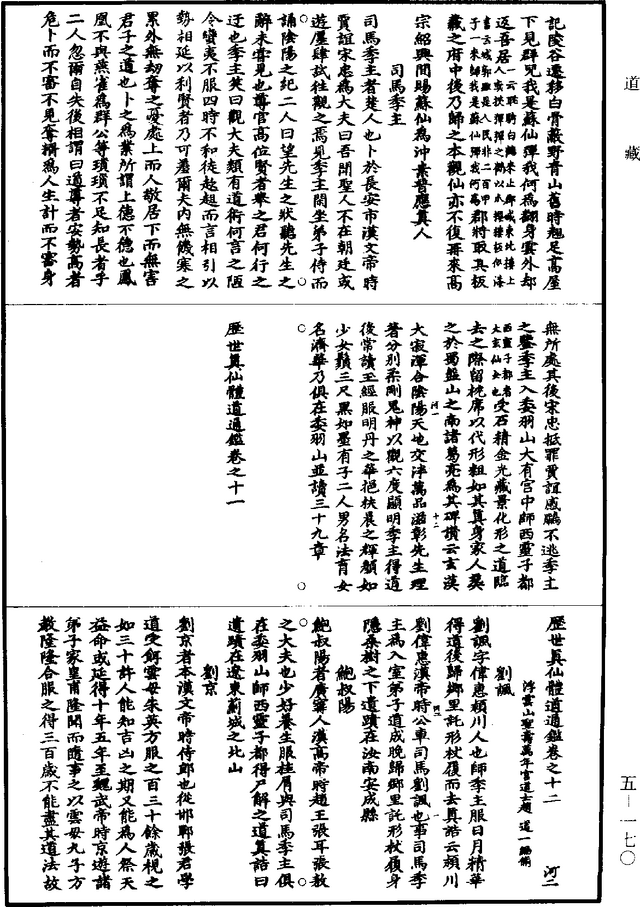 道藏
五—一七〇
記陵谷遷移白骨蔽野青山舊時翹足高屋
下見群兒我是蘇仙彈我何為翻身雲外却
返吾居
郡將取其板
藏之府中後乃歸之本觀仙亦不復再來高
宗紹興間賜蘇仙為沖素普應真人
司馬季主
司馬季主者楚人也卜於長安市漢文帝時
賈誼宋忠為大夫曰吾聞聖人不在朝廷或
遊屢肆試往觀之焉見季主閒坐弟子侍而
誦陰陽之紀二人曰望先生之狀聽先生之
辭未嘗見也尊官高位賢者舉之君何行之
迂也季主笑曰觀大夫類有道術何言之陋
令蠻夷不服四時不和徒趑趄而言相引以
勢相延以利賢者乃可羞爾夫內無饑寒之
累外無劫奪之憂處上而人敬居下而無害
君子之道也卜之為業所謂上德不德也鳳
凰不與燕雀為群公等瑣瑣不足知長者乎
二人忽爾自失後相謂曰道尊者安勢高者
危卜而不審不見奪糈為人生計而不審身
無所處其後宋忠抵罪賈誼感鵩不逃季主
之鑒季主入委羽山大有宮中師西靈子都
西靈子都者太玄仙女也受石精金光藏景化形之道臨
去之際留枕席以代形粗如其真身家人葬
之於蜀盤山之南諸葛亮為其碑讚云玄漠
大寂渾合陰陽天地交泮萬品滋彰先生理
著分別柔剛鬼神以觀六度顯明季主得道
後常讀玉經服明丹之華挹扶晨之輝顏如
少女鬚三尺黑如墨有子二人男名法育女
名濟華乃俱在委羽山並讀三十九章
歷世真仙體道通鑑卷之十一
歷世真仙體道通鑑卷之十二 河二
浮雲山聖壽萬年宮道士趙道一編修
劉諷
劉諷字偉惠潁川人也師季主服日月精華
得道後歸鄉里託形杖履而去真誥云潁川
劉偉惠漢帝時公車司馬劉諷也事司馬季
主為入室弟子道成晚歸鄉里託形杖履身
隱桑樹之下遺蹟在汝南安成縣
鮑叔陽
鮑叔陽者廣寧人漢高帝時趙王張耳張敖
之大夫也少好養生服桂屑與司馬季主俱
在委羽山師西靈子都得尸解之道真誥曰
遺蹟在遼東薊城之北山
劉京
劉京者本漢文帝時侍郎也從邯鄲張君學
道受餌雲母朱英方服之百三十餘歲視之
如三十許人能知吉凶之期又能為人祭天
益命或延得十年五年至魏武帝時京遊諸
弟子家皇甫隆聞而隨事之以雲母九子方
教隆隆合服之得三百歲不能盡其道法故